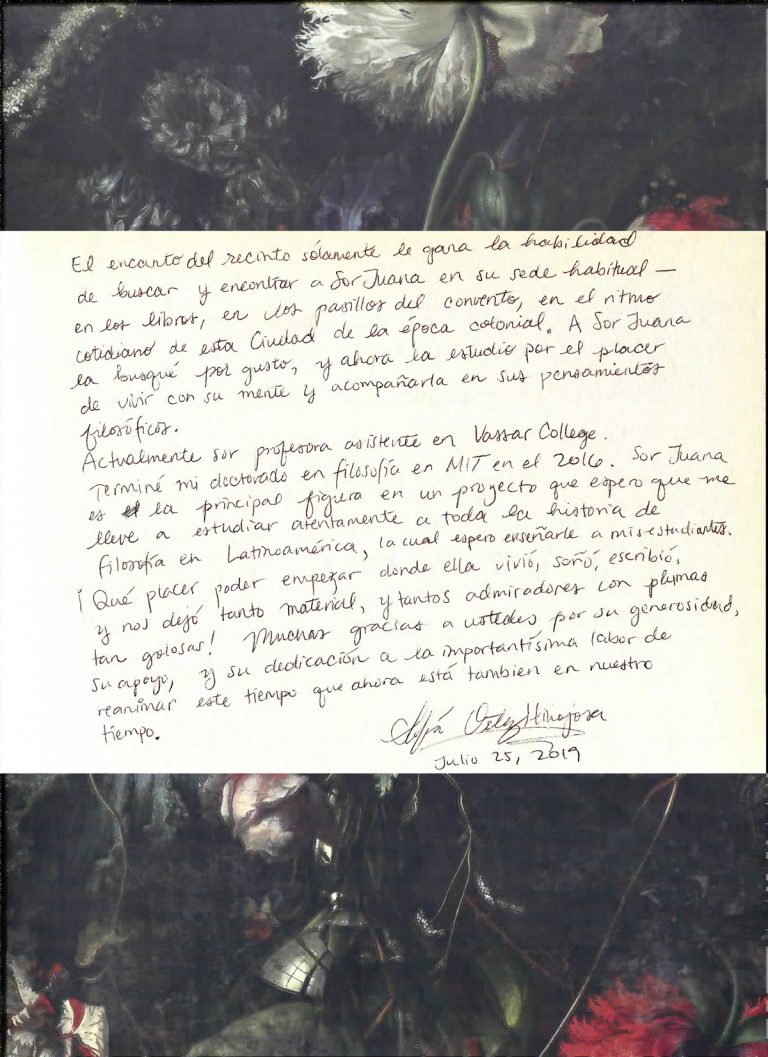 El encanto del recinto sólamente le gana la habilidad
de buscar y encontrar a Sor Juana en su sede habitual —
en los libros, en los pasillos del convento, en el ritmo
cotidiano de esta Ciudad de la época colonial. A Sor Juana
la busqué por gusto, y ahora la estudio por el placer
de vivir con su mente y acompañarla en sus pensamientos
filosóficos.
Actualmente soy profesora asistente en Vassar College.
Terminé mi doctorado en filosofía en MIT en el 2016. Sor Juana
es la principal figura en un proyecto que espero que me
lleve a estudiar atentamente a toda la historia de
filosofía en Latinoamérica, la cual espero enseñarle a mis estudiantes.
¡Qué placer poder empezar donde ella vivió, soñó, escribió,
y nos dejó tanto material, y tantos admiradores con plumas
tan golosas! Muchas gracias a ustedes por su generosidad,
su apoyo, y su dedicación a la importantísima labor de
reanimar este tiempo que ahora está tambien en nuestro
tiempo.
Ortiz Hinojosa
Julio 25, 2019